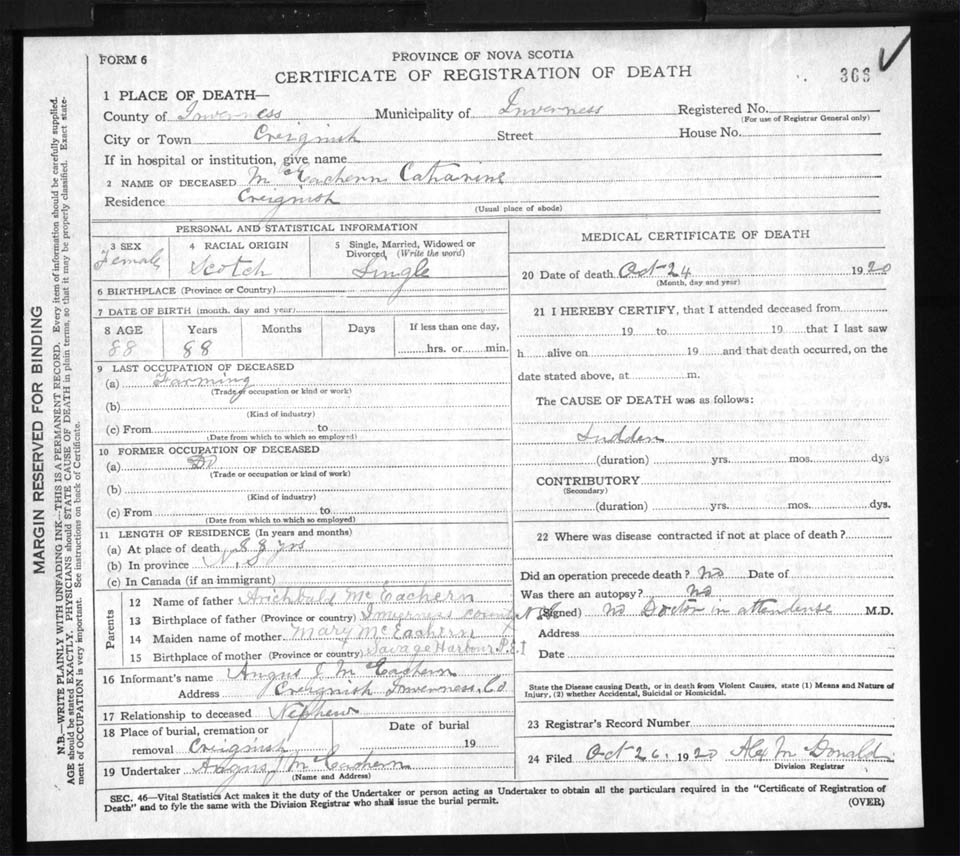 FORM 6
PROVINCE OF NOVA SCOTIA
CERTIFICATE OF REGISTRATION OF DEATH
366
1 PLACE OF DEATH—
County of Inverness Municipality of Inverness Registered No.
(For use of Registrar General only)
City or Town Creignish Street House No.
If in hospital or institution, give name
2 NAME OF DECEASED McEachern Catharine
Residence Creignish
(Usual place of abode)
PERSONAL AND STATISTICAL INFORMATION
3 SEX 4 RACIAL ORIGIN 5 Single, Married, Widowed or Divorced, (Write the word)
Female Scotch Single
6 BIRTHPLACE (Province or Country)
7 DATE OF BIRTH (month, day and year)
8 AGE Years Months Days If less than one day,
88 88 hrs. or min.
9 LAST OCCUPATION OF DECEASED
(a) Farming
(Trade or occupation or kind or work)
(b)
(Kind of industry)
(c) From to
(Date from which to which so employed)
10 FORMER OCCUPATION OF DECEASED
(a) Do
(Trade or occupation or kind of work)
(b)
(Kind of industry)
(c) From to
(Date from which to which so employed)
11 LENGTH OF RESIDENCE (In years and months)
(a) At place of death 88 yrs
(b) In province N.S
(c) In Canada (if an immigrant)
Parents
12 Name of father Archibald McEachern
13 Birthplace of father (Province or country) Inverness County N.S.
14 Maiden name of mother Mary McEachern
15 Birthplace of mother (Province or country) Savage Harbour P.E.I
16 Informant's name Angus J McEachern
Address Creignish Inverness, Co.
17 Relationship to deceased Nephew
18 Place of burial, cremation or removal Creignish Date of burial 19
19 Undertaker Angus J McEachern
(Name and Address)
MEDICAL CERTIFICATE OF DEATH
20 Date of death Oct 24 1920
(Month, day and year)
21 I HEREBY CERTIFY, that I attended deceased from
19 to 19 that I last saw
h alive on 19 and that death occurred, on the
date stated above, at m.
The CAUSE OF DEATH was as follows:
Sudden
(duration) yrs. mos. dys
CONTRIBUTORY
(Secondary)
(duration) yrs. mos. dys.
22 Where was disease contracted if not at place of death?
Did an operation precede death? No Date of
Was there an autopsy? No
(Signed) No Doctor in attendense M.D.
Address
Date
State the Disease causing Death, or in death from Violent Causes, state (1) Means and Nature of
Injury, (2) whether Accidental, Suicidal or Homicidal.
23 Registrar's Record Number
24 Filed Oct 26, 1920 Alex McDonald
Division Registrar
SEC. 46—Vital Statistics Act makes it the duty of the Undertaker or person acting as Undertaker to obtain all the particulars required in the "Certificate of Registration of
Death" and to fyle the same with the Division Registrar who shall issue the burial permit. (OVER)
MARGIN RESERVED FOR BINDING
N.B.—WRITE PLAINLY WITH UNFADING INK—THIS IS A PERMANENT RECORD. Every item of information should be carefully supplied.
AGE should be stated EXACTLY. PHYSICIANS should STATE CAUSE OF DEATH in plain terms, so that it may be properly classified. Exact state-
ment of OCCUPATION is very important. See instructions on back of Certificate.